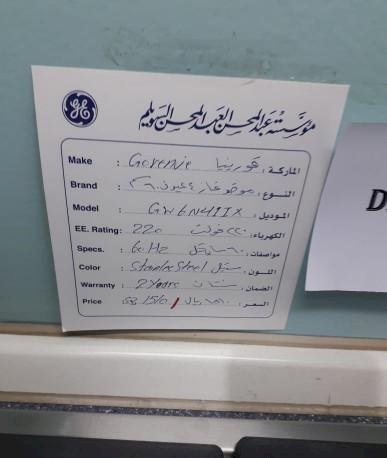 GE
مؤسسة عبد المحسن العبد المحسن السويلم
Make : Gorenje هورينيا الماركة :
Brand : موقد غاز ٤ عيون ٦٠ النوع :
Model : GW6N41IX الموديل :
EE. Rating : 220 ٢٢٠ فولت الكهرباء :
Specs. : 60 Hz ٦٠ سايكل مواصفات :
Color : Stainles Steel ستيل اللون :
Warranty : 2 Years سنتان الضمان :
Price : ريال السعر :
D